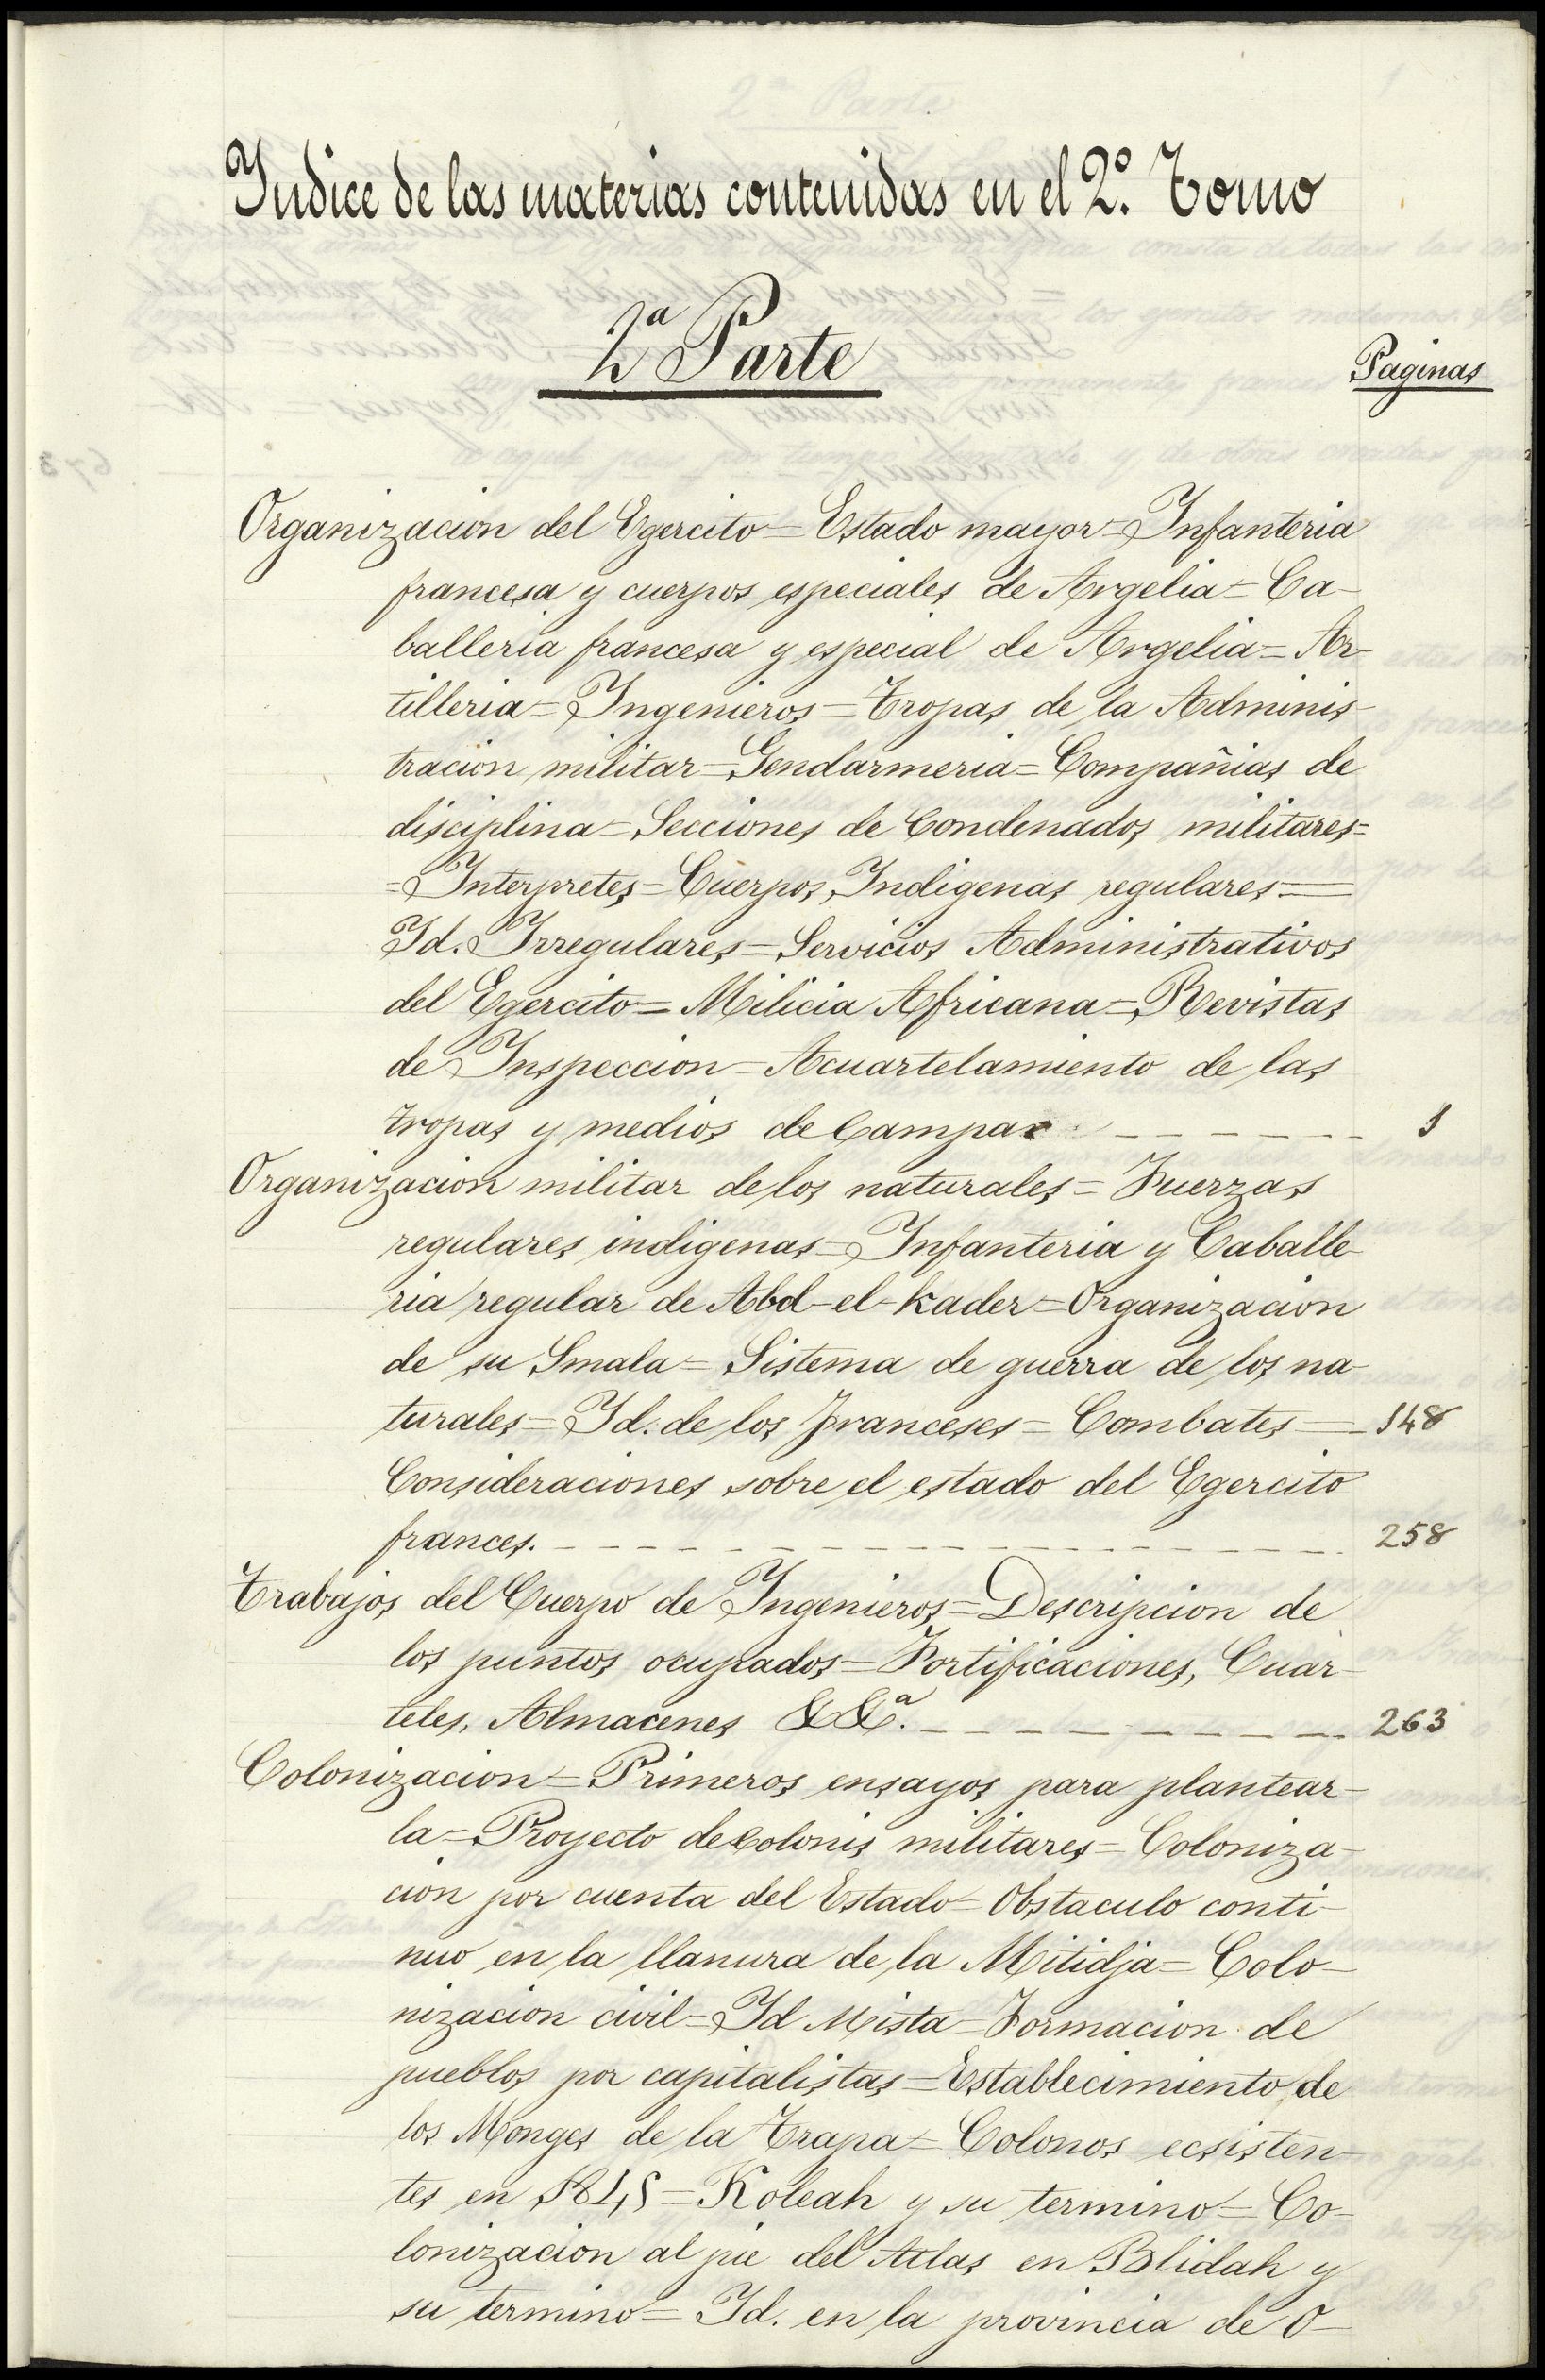 Indice de las materias contenidas en el 2º. Tomo
2ª Parte
Paginas
Organizacion del Egercito = Estado mayor = Infanteria
francesa y cuerpos especiales de Argelia = Ca-
balleria francesa y especial de Argelia = Ar-
tilleria = Ingenieros = Tropas de la Adminis-
tracion militar = Gendarmeria = Compañias de
disciplina = Secciones de Condenados militares =
= Interpretes = Cuerpos Indigenas regulares =
Id. Irregulares = Servicios Administrativos
del Egercito = Milicia Africana = Revistas
de Inspeccion = Acuartelamiento de las
tropas y medios de Campar - - - - - - 1
Organizacion militar de los naturales = Fuerzas
regulares indigenas = Infanteria y Caballe-
ria regular de Abd-el-Kader = Organizacion
de su Smala = Sistema de guerra de los na-
turales = Id. de los franceses = Combates = 148
Consideraciones sobre el estado del Egercito
frances. - - - - - - - - - - - - 258
Trabajos del Cuerpo de Ingenieros = Descripcion de
los puntos ocupados = Fortificaciones, Cuar-
teles, Almacenes &&ª. - - - - - - - - 263
Colonizacion = Primeros ensayos para plantear-
la = Proyecto de colonis militares = Coloniza-
cion por cuenta del Estado = Obstaculo conti-
nuo en la llanura de la Mitidja = Colo-
nizacion civil = Id Mista = Formacion de
pueblos por capitalistas = Establecimiento de
los Monges de la Trapa = Colonos ecsisten-
tes en 1845 = Koleah y su termino = Co-
lonizacion al pie del Atlas en Blidah y
su termino = Id. en la provincia de O-